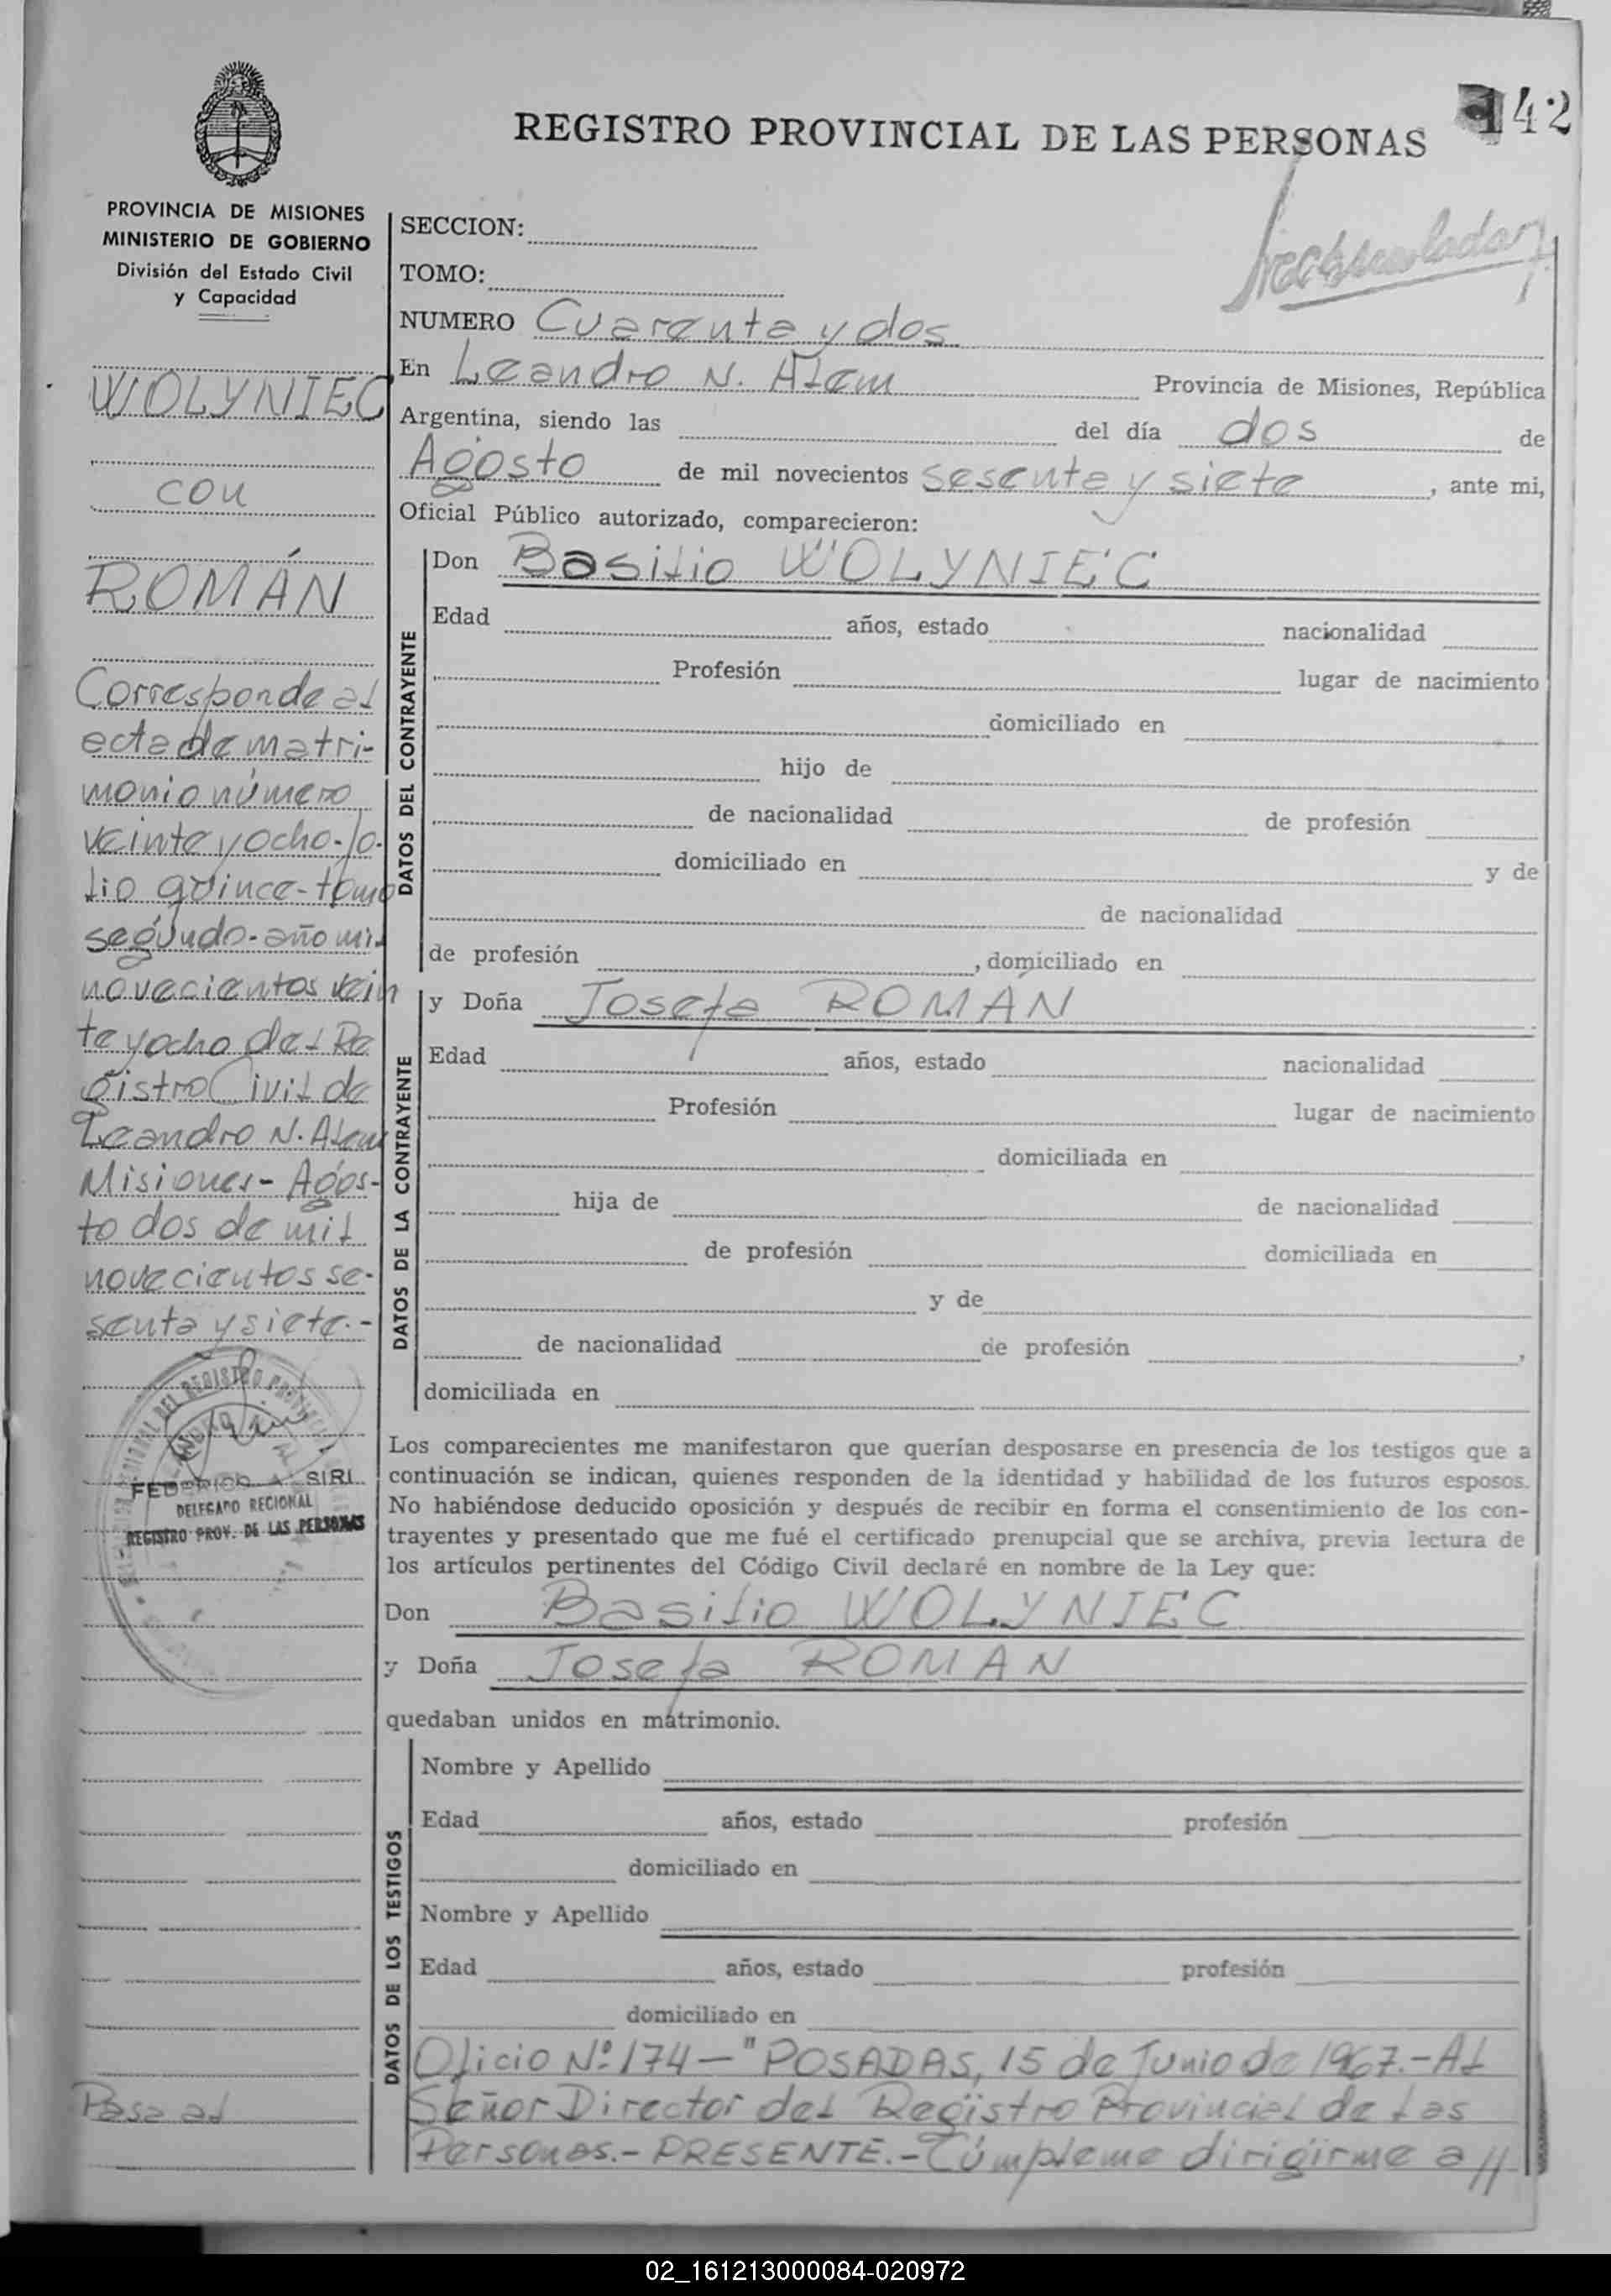 142
REGISTRO PROVINCIAL DE LAS PERSONAS
PROVINCIA DE MISIONES
MINISTERIO DE GOBIERNO
División del Estado Civil
y Capacidad
WOLYNIEC
con
ROMÁN
Corresponde al
acta de matri-
monio número
veinte y ocho-fo-
lio quince-tomo
segundo-año mil
novecientos vein
te y ocho del Re
gistro Civil de
Leandro N. Alem
Misiones- Agos-
to dos de mil
novecientos se-
senta y siete.-
FEDERICO A. SIRI
DELEGADO REGIONAL
REGISTRO PROV. DE LAS PERSONAS
Pasa al
SECCION:
TOMO:
NUMERO Cuarenta y dos
En Leandro N. Alem Provincia de Misiones, República
Argentina, siendo las del día dos de
Agosto de mil novecientos sesenta y siete, ante mi,
Oficial Público autorizado, comparecieron:
DATOS DEL CONTRAYENTE
Don Basilio WOLYNIEC
Edad años, estado nacionalidad
Profesión lugar de nacimiento
domiciliado en
hijo de
de nacionalidad de profesión
domiciliado en y de
de nacionalidad
de profesión , domiciliado en
DATOS DE LA CONTRAYENTE
y Doña Josefa ROMÁN
Edad años, estado nacionalidad
Profesión lugar de nacimiento
domiciliada en
hija de de nacionalidad
de profesión domiciliada en
y de
de nacionalidad de profesión ,
domiciliada en
Los comparecientes me manifestaron que querían desposarse en presencia de los testigos que a
continuación se indican, quienes responden de la identidad y habilidad de los futuros esposos.
No habiéndose deducido oposición y después de recibir en forma el consentimiento de los con-
trayentes y presentado que me fué el certificado prenupcial que se archiva, previa lectura de
los artículos pertinentes del Código Civil declaré en nombre de la Ley que:
Don Basilio WOLYNIEC
y Doña Josefa ROMAN
quedaban unidos en matrimonio.
DATOS DE LOS TESTIGOS
Nombre y Apellido
Edad años, estado profesión
domiciliado en
Nombre y Apellido
Edad años, estado profesión
domiciliado en
Oficio Nº 174-"POSADAS, 15 de Junio de 1967.-Al
Señor Director del Registro Provincial de las
Personas.-PRESENTE.-Cúmpleme dirigirme a //
02_161213000084-020972